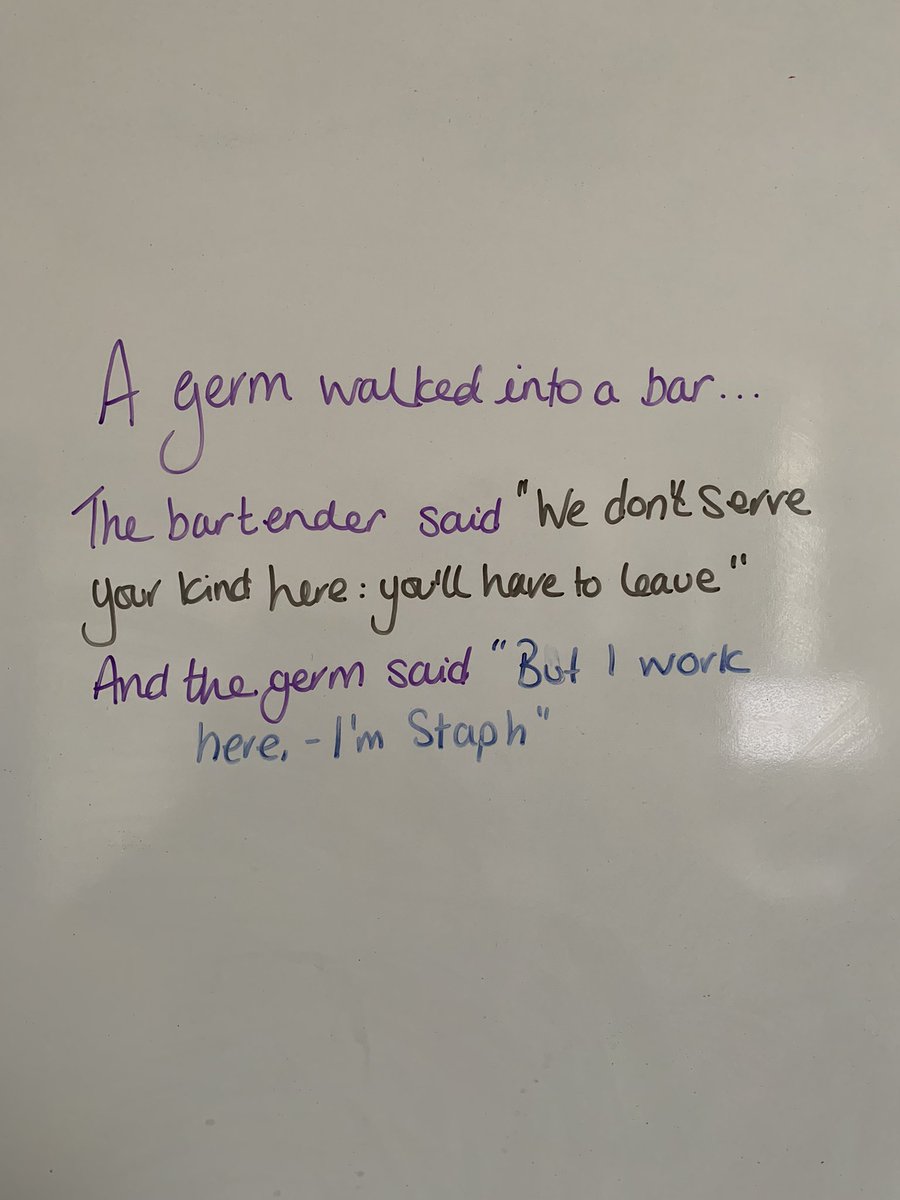 A germ walked into a bar...
The bartender said "We don't serve
your kind here: you'll have to leave"
And the germ said "But I work
here. - I'm Staph"